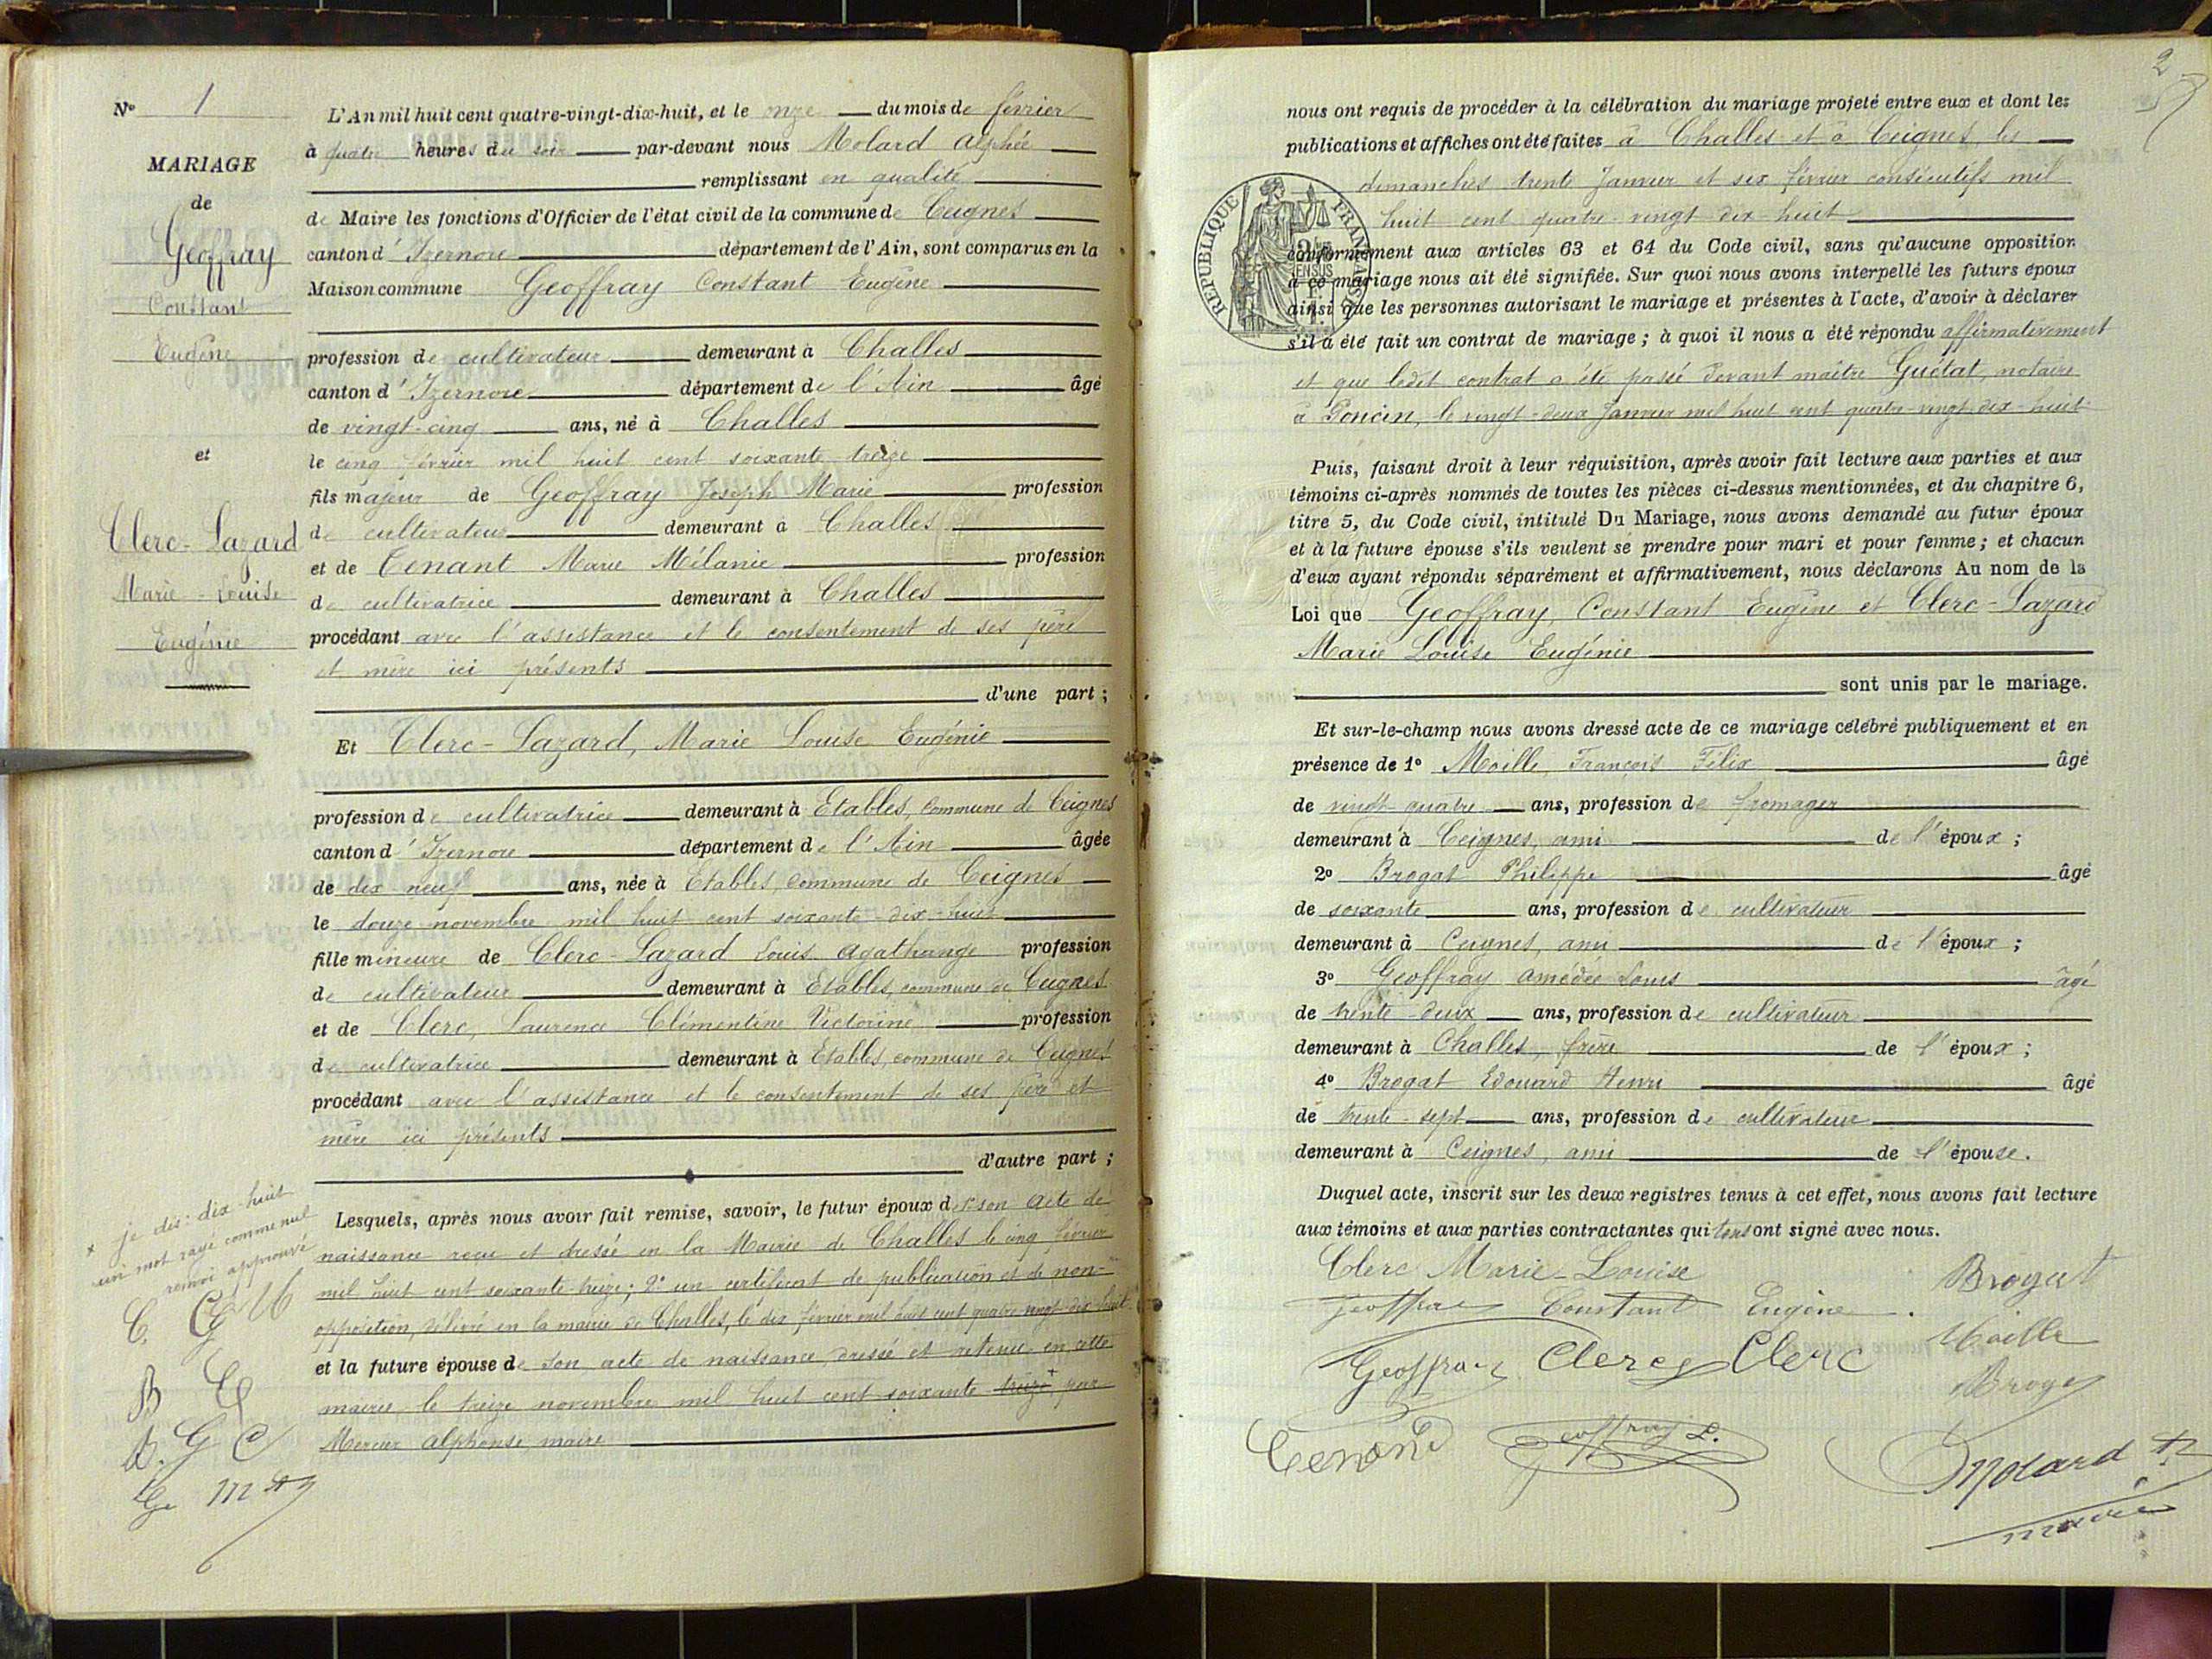 N° 1
MARIAGE
de
Geoffray
Constant
Eugène
et
Clerc-Lazard
Marie-Louise
Eugénie
L'An mil huit cent quatre-vingt-dix-huit, et le onze du mois de février
à quatre heures du soir par-devant nous Molard Alphée
remplissant en qualité
de Maire les fonctions d'Officier de l'état civil de la commune de Ceignes
canton d'Izernore département de l'Ain, sont comparus en la
Maison commune Geoffray Constant Eugène
profession de cultivateur demeurant à Challes
canton d'Izernore département de l'Ain âgé
de vingt-cinq ans, né à Challes
le cinq février mil huit cent soixante treize
fils majeur de Geoffray Joseph Marie profession
de cultivateur demeurant à Challes
et de Tenant Marie Mélanie profession
de cultivatrice demeurant à Challes
procédant avec l'assistance et le consentement de ses père
et mère ici présents
d'une part ;
Et Clerc-Lazard, Marie Louise Eugénie
profession de cultivatrice demeurant à Etables, commune de Ceignes
canton d'Izernore département de l'Ain âgée
de dix neuf ans, née à Etables, commune de Ceignes
le douze novembre mil huit cent soixante-dix-huit
fille mineure de Clerc-Lazard Louis Agathange profession
de cultivateur demeurant à Etables, commune de Ceignes
et de Clerc, Laurence Clémentine Victorine profession
de cultivatrice demeurant à Etables, commune de Ceignes
procédant avec l'assistance et le consentement de ses père et
mère ici présents
d'autre part ;
Lesquels, après nous avoir fait remise, savoir, le futur époux de 1° son acte de
naissance reçu et dressé en la Mairie de Challes le cinq février
mil huit cent soixante-treize; 2° un certificat de publication et de non-
opposition, délivré en la mairie de Challes, le dix février mil huit cent quatre vingt-dix-huit
et la future épouse de son acte de naissance dressé et retenu en cette
mairie le treize novembre mil huit cent soixante treize + par
Mercier Alphonse maire
+ je dis: dix-huit
un mot rayé comme nul
renvoi approuvé
C. CG
B
B. G C
G. M A
2
nous ont requis de procéder à la célébration du mariage projeté entre eux et dont les
publications et affiches ont été faites à Challes et à Ceignes, les
dimanches trente Janvier et six février consécutifs mil
huit cent quatre-vingt dix huit
RÉPUBLIQUE FRANÇAISE
conformément aux articles 63 et 64 du Code civil, sans qu'aucune opposition
à ce mariage nous ait été signifiée. Sur quoi nous avons interpellé les futurs époux
ainsi que les personnes autorisant le mariage et présentes à l'acte, d'avoir à déclarer
s'il a été fait un contrat de mariage ; à quoi il nous a été répondu affirmativement
et que ledit contrat a été passé devant maître Guétat, notaire
à Poncin, le vingt-deux Janvier mil huit cent quatre-vingt-dix-huit
Puis, faisant droit à leur réquisition, après avoir fait lecture aux parties et aux
témoins ci-après nommés de toutes les pièces ci-dessus mentionnées, et du chapitre 6,
titre 5, du Code civil, intitulé Du Mariage, nous avons demandé au futur époux
et à la future épouse s'ils veulent se prendre pour mari et pour femme ; et chacun
d'eux ayant répondu séparément et affirmativement, nous déclarons Au nom de la
Loi que Geoffray, Constant Eugène et Clerc-Lazard
Marie Louise Eugénie
sont unis par le mariage.
Et sur-le-champ nous avons dressé acte de ce mariage célébré publiquement et en
présence de 1° Moille, François Félix âgé
de vingt-quatre ans, profession de fromager
demeurant à Ceignes, ami de l'époux ;
2° Brogat Philippe âgé
de soixante ans, profession de cultivateur
demeurant à Ceignes, ami de l'époux ;
3° Geoffray Amédée Louis âgé
de trente-deux ans, profession de cultivateur
demeurant à Challes, frère de l'époux ;
4° Brogat Edouard Henri âgé
de trente-sept ans, profession de cultivateur
demeurant à Ceignes, ami de l'épouse.
Duquel acte, inscrit sur les deux registres tenus à cet effet, nous avons fait lecture
aux témoins et aux parties contractantes qui tous ont signé avec nous.
Clerc Marie-Louise
Geoffray Constant Eugène
Brogat
Moille
Geoffray Clerc Clerc
Broga
Tenand Geoffray L.
Molard A
maire